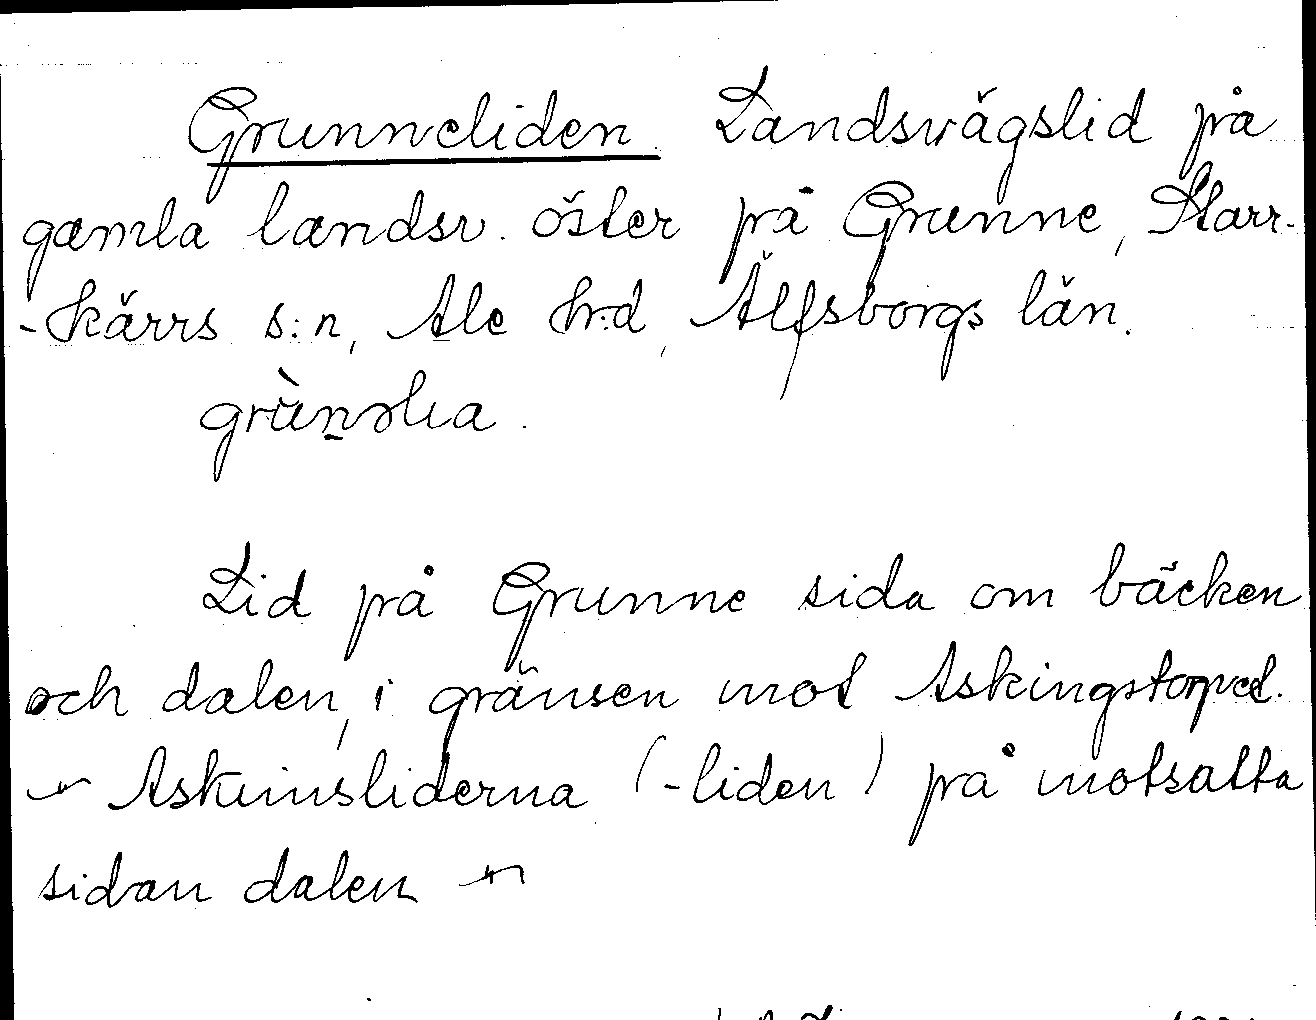 Grunneliden. Landsvägslid på
gamla landsv. öster på Grunne, Starr-
-kärrs s:n, Ale h:d, Älfsborgs län.
Lid på Grunne sida om bäcken
och dalen, i gränsen mot Askingstorped.
Askimsliderna (-liden) på motsatta
sidan dalen